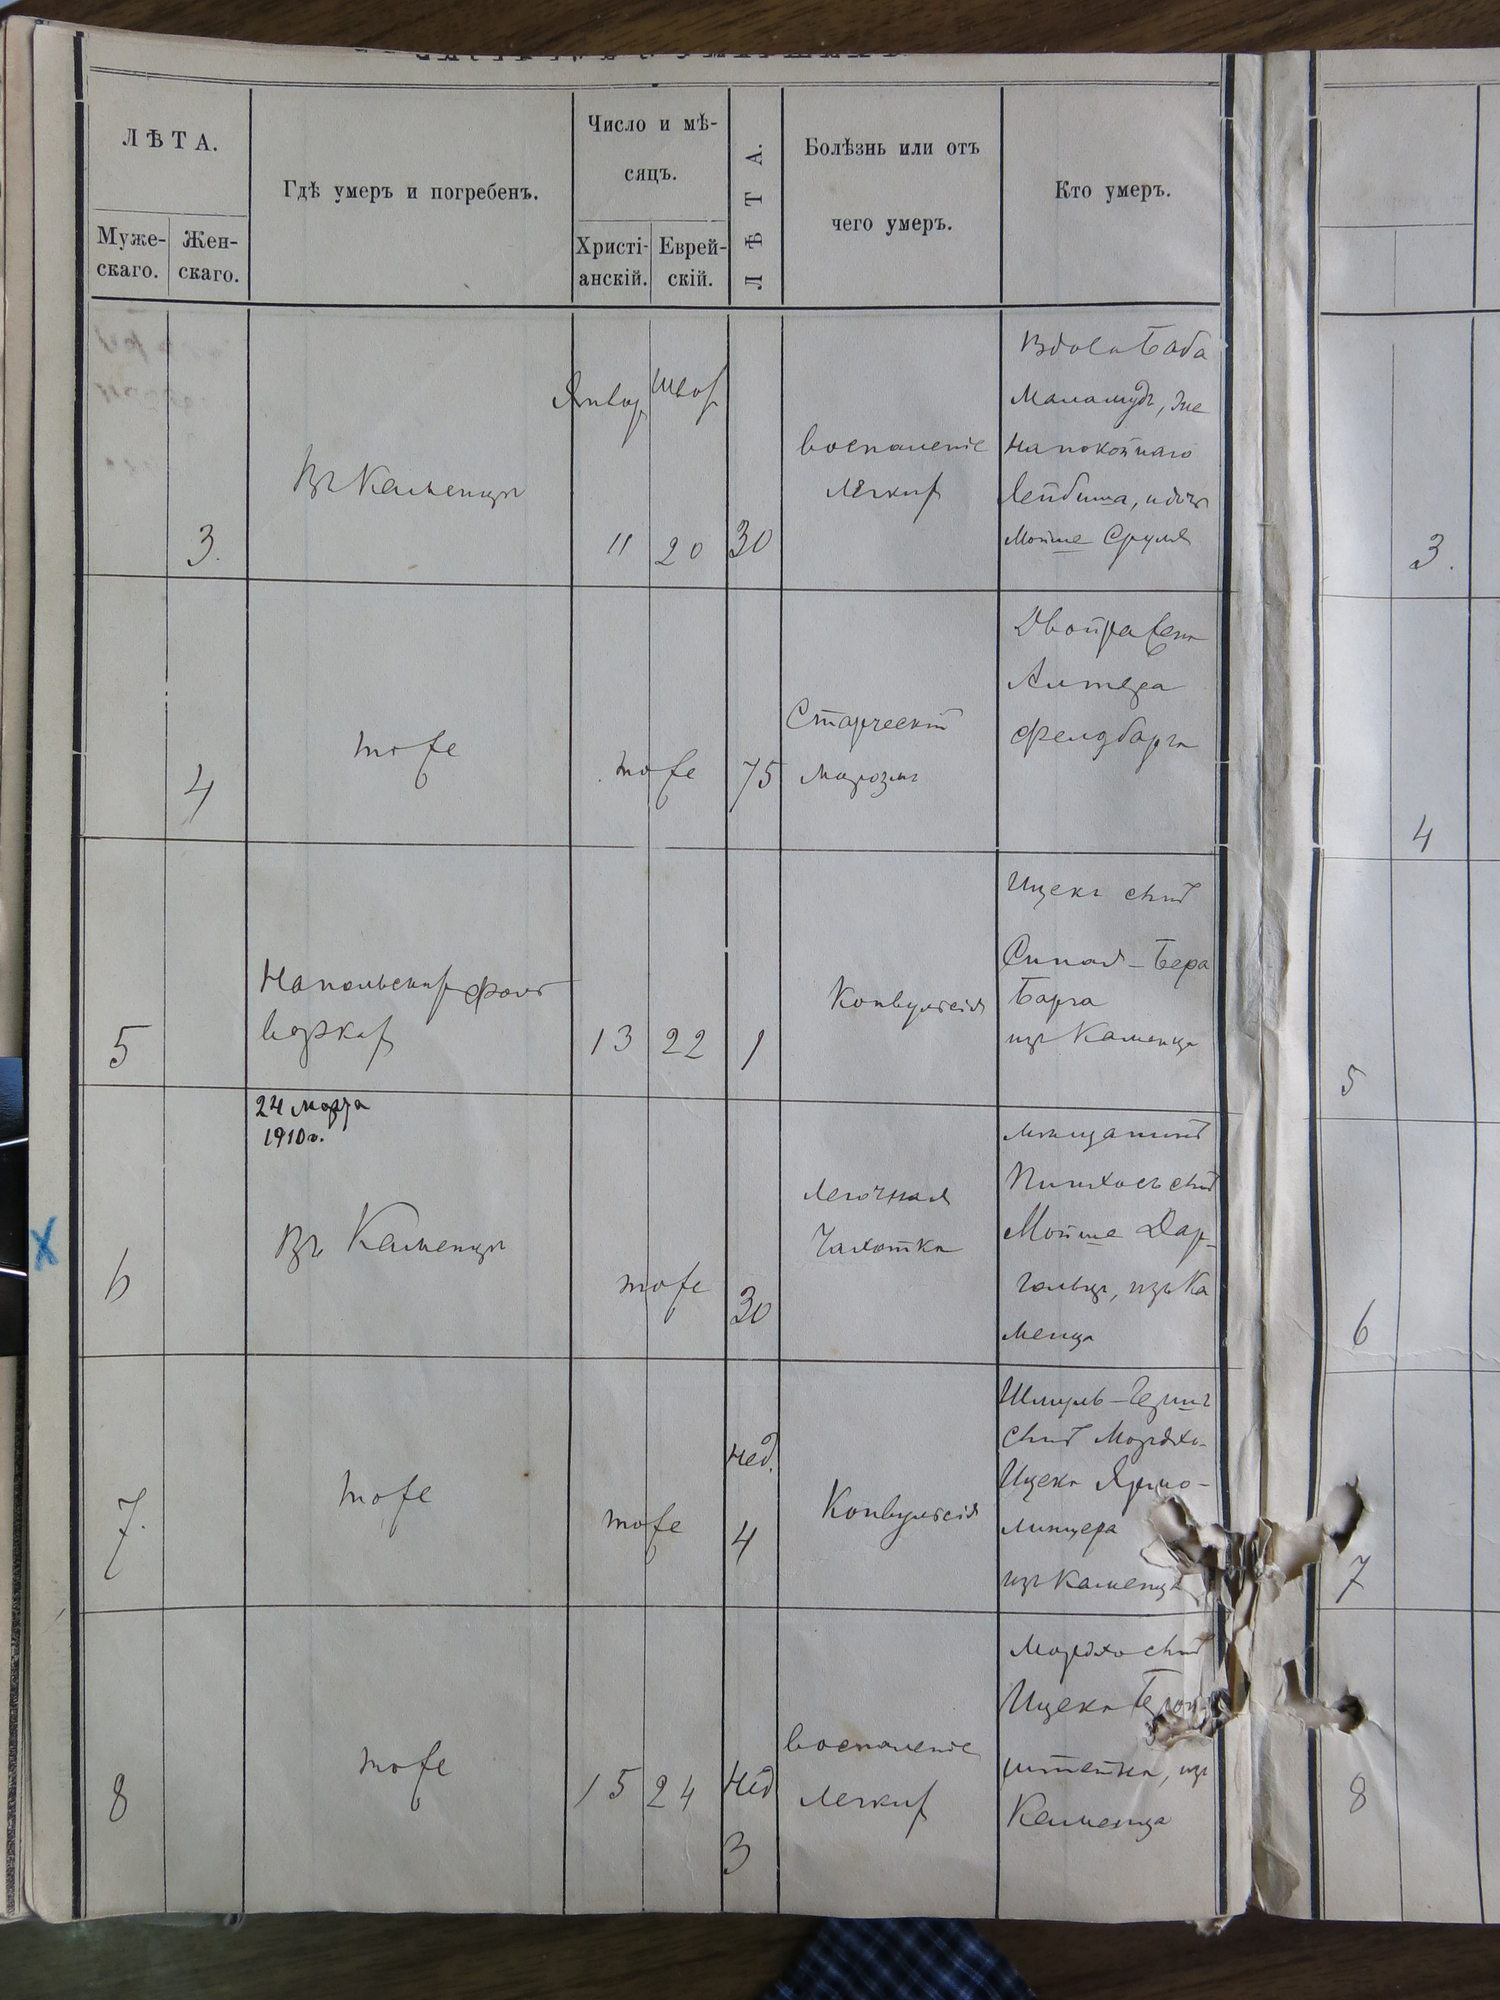 ЛѢТА.
Муже-
скаго.
Жен-
скаго.
Гдѣ умеръ и погребенъ.
Число и мѣ-
сяцъ.
Христі-
анскій.
Еврей-
скій.
ЛѢТА.
Болѣзнь или отъ
чего умеръ.
Кто умеръ.
3.
Въ Каменцѣ
Январ
11
20
30
воспаленіе
легких
Вдова Баба
Маламудъ, же
на покойнаго
Лейбиша, и дочь
Мойше Сруля
3.
4
тоже
тоже
75
Старческій
маразмъ
Двойра
Алтера
Фелдбарга
4
5
На польских фоль
верках
13
22
1
Конвульсія
Ицекъ сынъ
Синая-Бера
Барга
изъ Каменца
5
24 марта
1910г.
6
Въ Каменцѣ
тоже
30
легочная
Чахотка
мѣщанинъ
Пинхосъ сынъ
Мойше Дар-
гольцъ, изъ Ка
менца
6
7.
тоже
тоже
нед.
4
Конвульсія
Шмуль-Гершъ
сынъ Мордхо-
Ицека Ярмо-
линцера
изъ Каменца
7
8
тоже
15
24
нед
3
воспаленіе
легких
Мордхо сынъ
Ицека
штейна, изъ
Каменца
8